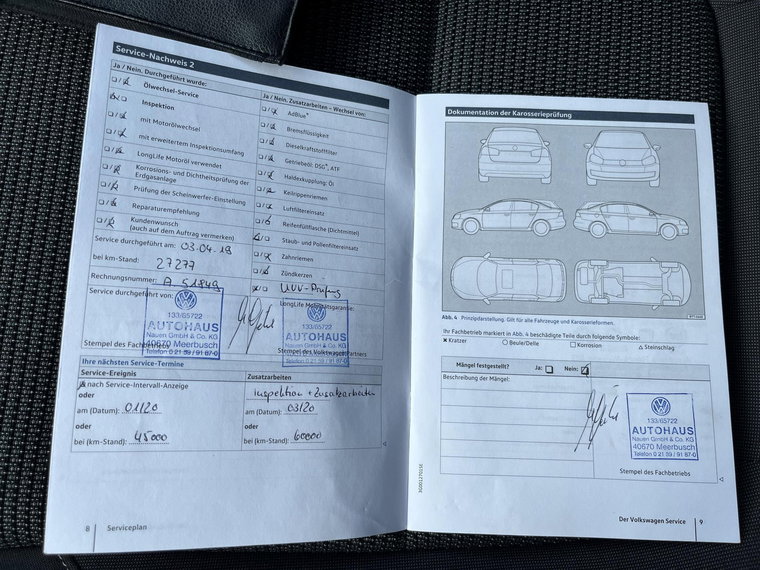 Service-Nachweis 2
Ja / Nein. Durchgeführt wurde:
Ölwechsel-Service
Inspektion
mit Motorölwechsel
mit erweitertem Inspektionsumfang
LongLife Motoröl verwendet
Korrosions- und Dichtheitsprüfung der
Erdgasanlage
Prüfung der Scheinwerfer-Einstellung
Reparaturempfehlung
Kundenwunsch
(auch auf dem Auftrag vermerken)
Service durchgeführt am: 03.04.19
bei km-Stand: 27277
Rechnungsnummer: A 51849
Service durchgeführt von:
133/65722
AUTOHAUS
Nauen GmbH & Co. KG
40670 Meerbusch
Telefon 0 21 59 / 91 87-0
Stempel des Fachbetriebs
Ja / Nein. Zusatzarbeiten – Wechsel von:
AdBlue®
Bremsflüssigkeit
Dieselkraftstofffilter
Getriebeöl: DSG®, ATF
Haldexkupplung: Öl
Keilrippenriemen
Luftfiltereinsatz
Reifenfüllflasche (Dichtmittel)
Staub- und Pollenfiltereinsatz
Zahnriemen
Zündkerzen
UVV-Prüfung
LongLife Mobilitätsgarantie:
133/65722
AUTOHAUS
Nauen GmbH & Co. KG
40670 Meerbusch
Stempel des Volkswagen Partners
Ihre nächsten Service-Termine
Service-Ereignis
nach Service-Intervall-Anzeige
oder
am (Datum): 01/20
oder
bei (km-Stand): 45000
Zusatzarbeiten
Inspektion + Zusatzarbeiten
am (Datum): 03/20
oder
bei (km-Stand): 60000
8 | Serviceplan
Dokumentation der Karosserieprüfung
Abb. 4 Prinzipdarstellung. Gilt für alle Fahrzeuge und Karosserieformen.
Ihr Fachbetrieb markiert in Abb. 4 beschädigte Teile durch folgende Symbole:
× Kratzer ○ Beule/Delle □ Korrosion △ Steinschlag
Mängel festgestellt? Ja: Nein:
Beschreibung der Mängel:
133/65722
AUTOHAUS
Nauen GmbH & Co. KG
40670 Meerbusch
Telefon 0 21 59 / 91 87-0
Stempel des Fachbetriebs
Der Volkswagen Service | 9